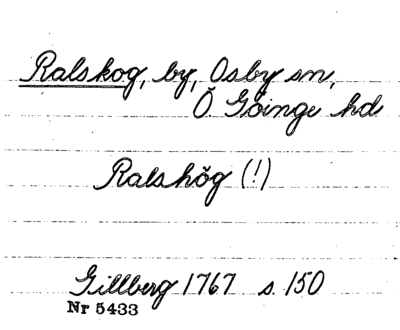 Ralskog, by, Osby sn,
Ö Göinge hd
Ralshög (!)
Gillberg 1767 s. 150
Nr 5433